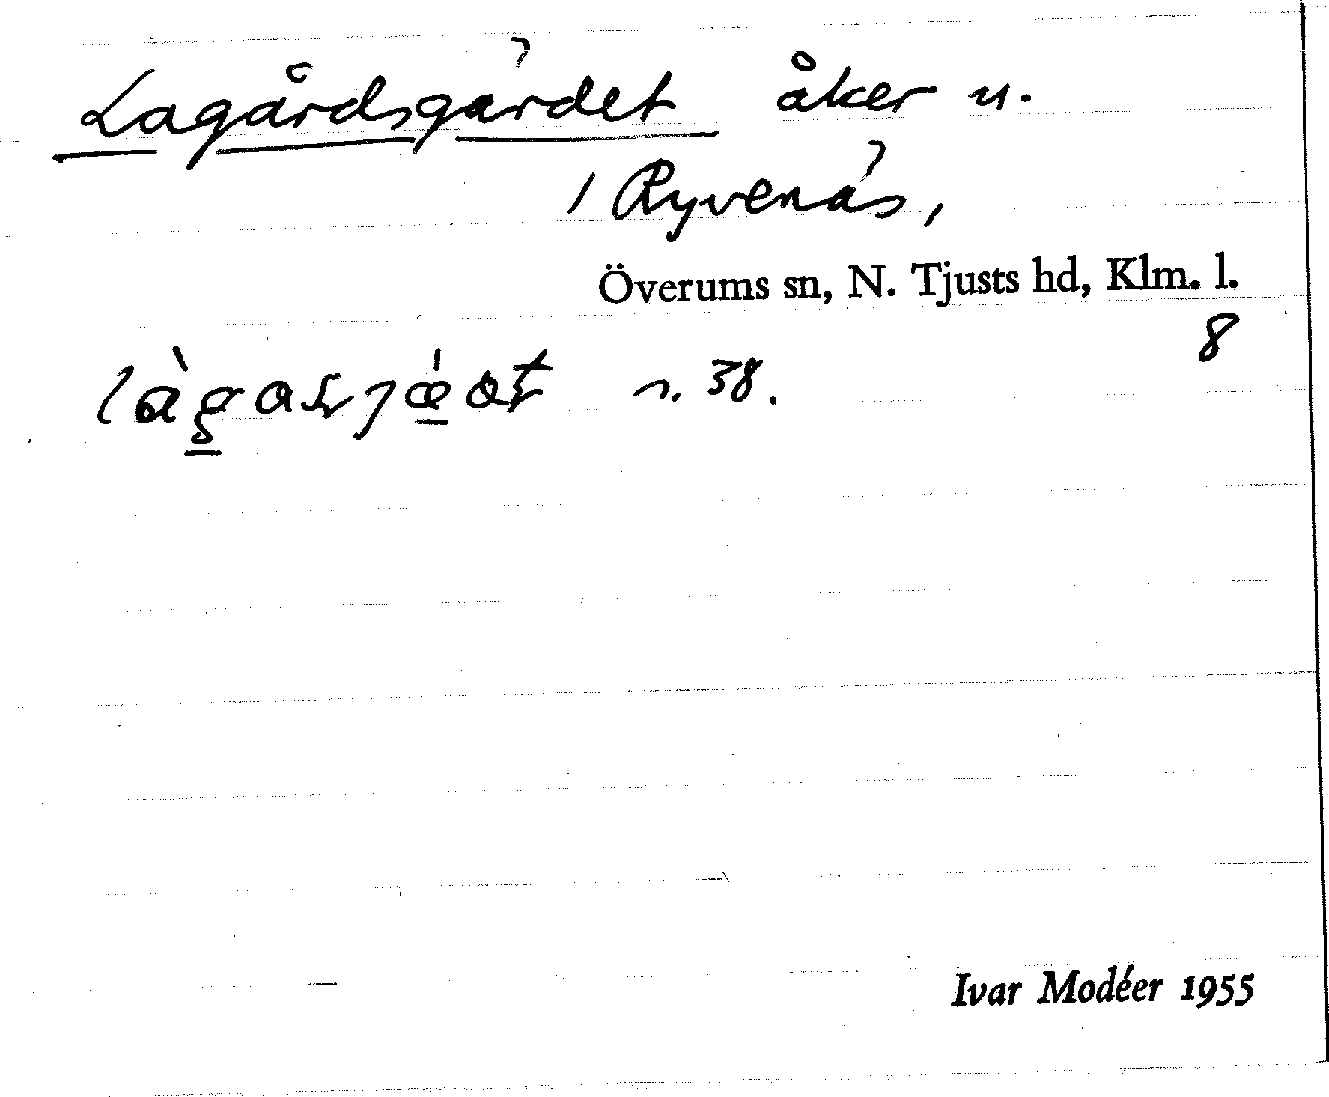 Lagårdsgärdet åker u.
/ Ryvenäs,
Överums sn, N. Tjusts hd, Klm. l.
8
n. 38.
Ivar Modéer 1955